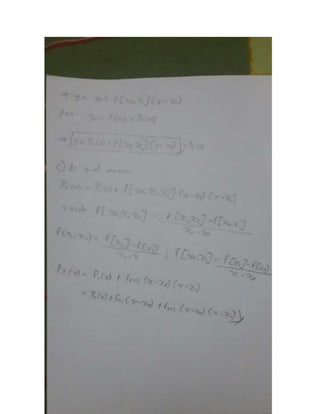 ⇒ y = y₀ + f[x₀,x₁](x-x₀)
pero y₀ = f(x₀) = P₀(x)
⇒ y = P₀(x) + f[x₀,x₁](x-x₀) = P₁(x)
c) de igual manera
P₂(x) = P₁(x) + f[x₀,x₁,x₂](x-x₀)(x-x₁)
donde f[x₀,x₁,x₂] = f[x₁,x₂]-f[x₀,x₁] / x₂-x₀
f[x₁,x₂] = f[x₂]-f[x₁] / x₂-x₁ ; f[x₀,x₁] = f[x₁]-f[x₀] / x₁-x₀
P₂(x) = P₁(x) + f₀₁₂(x-x₀)(x-x₁)
= P₀(x) + f₀₁(x-x₀) + f₀₁₂(x-x₀)(x-x₁)